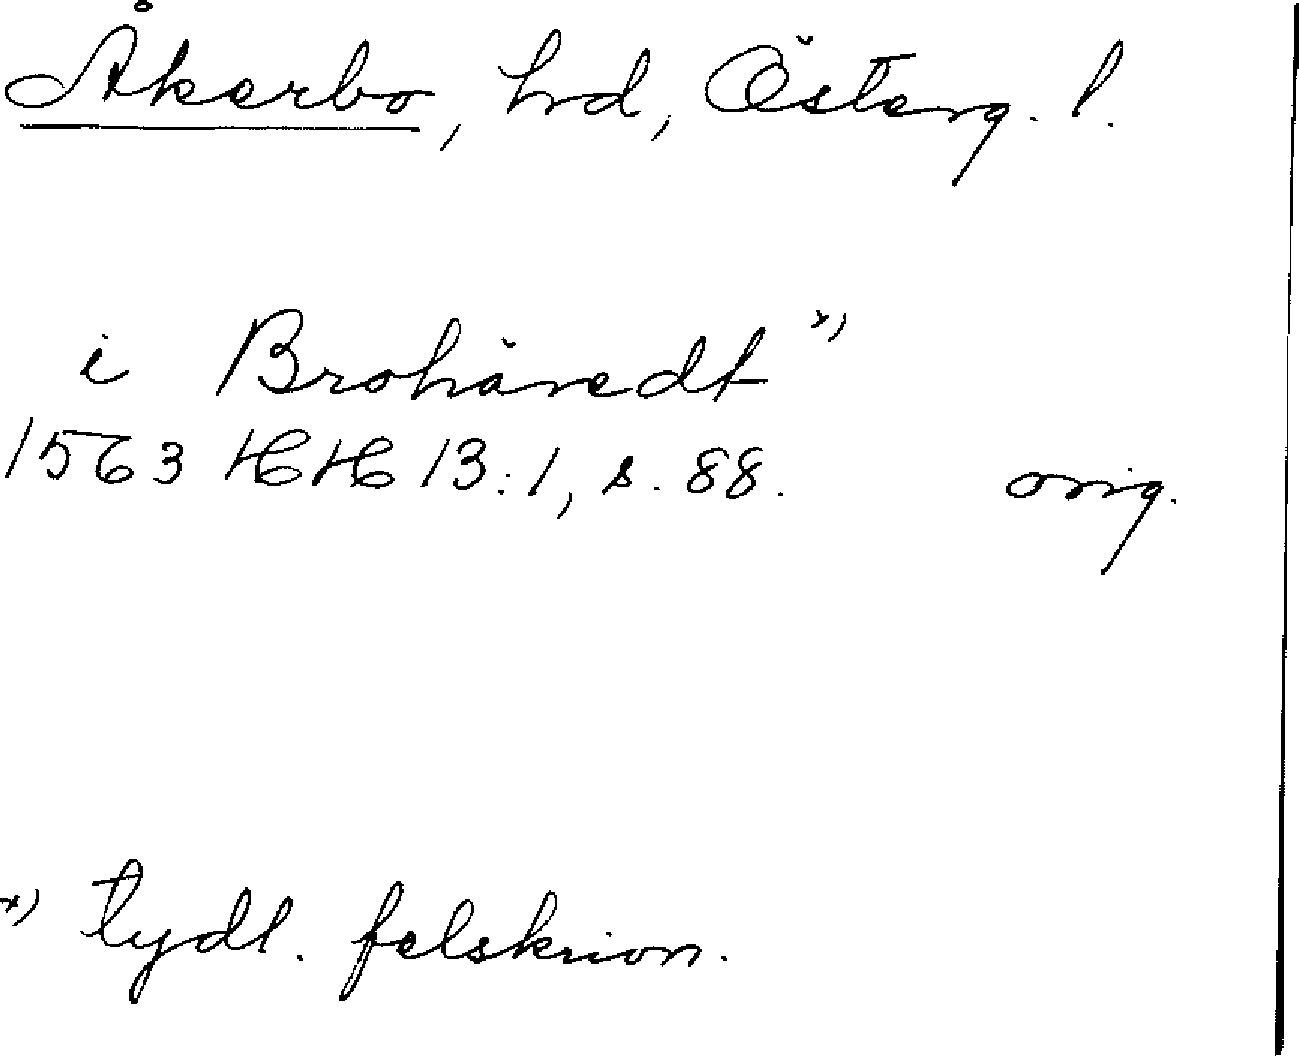 Åkerbo, hrd, Österg. l.
i Brohäredt x)
1563 HH 13:1, s. 88. orig.
x) tydl. felskrivn.